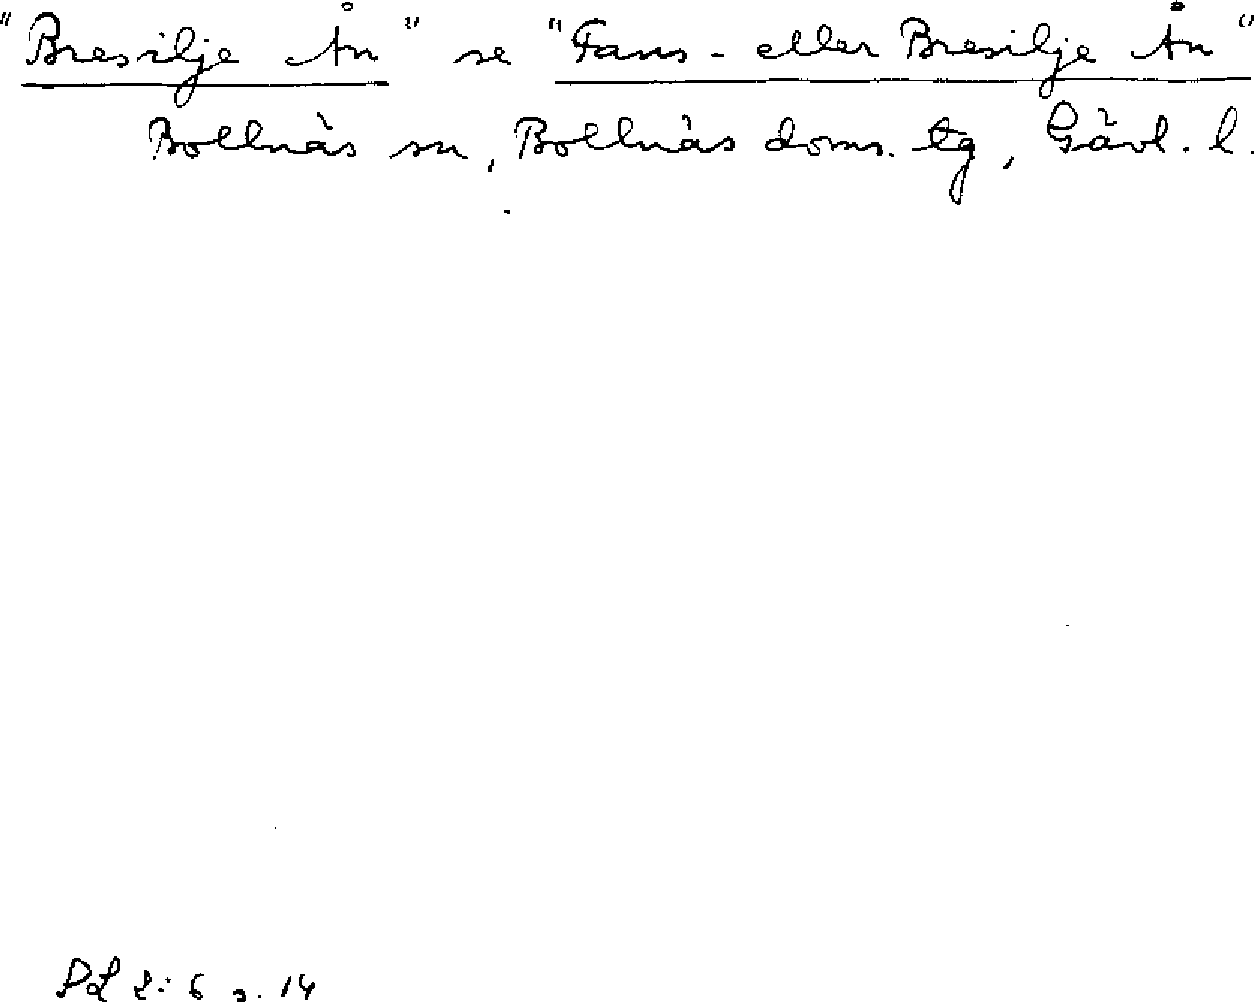 "Bresilje Ån" se "Fans- eller Bresilje Ån"
Bollnäs sn, Bollnäs doms. tg, Gävl. l.
PL 2:6 s. 14